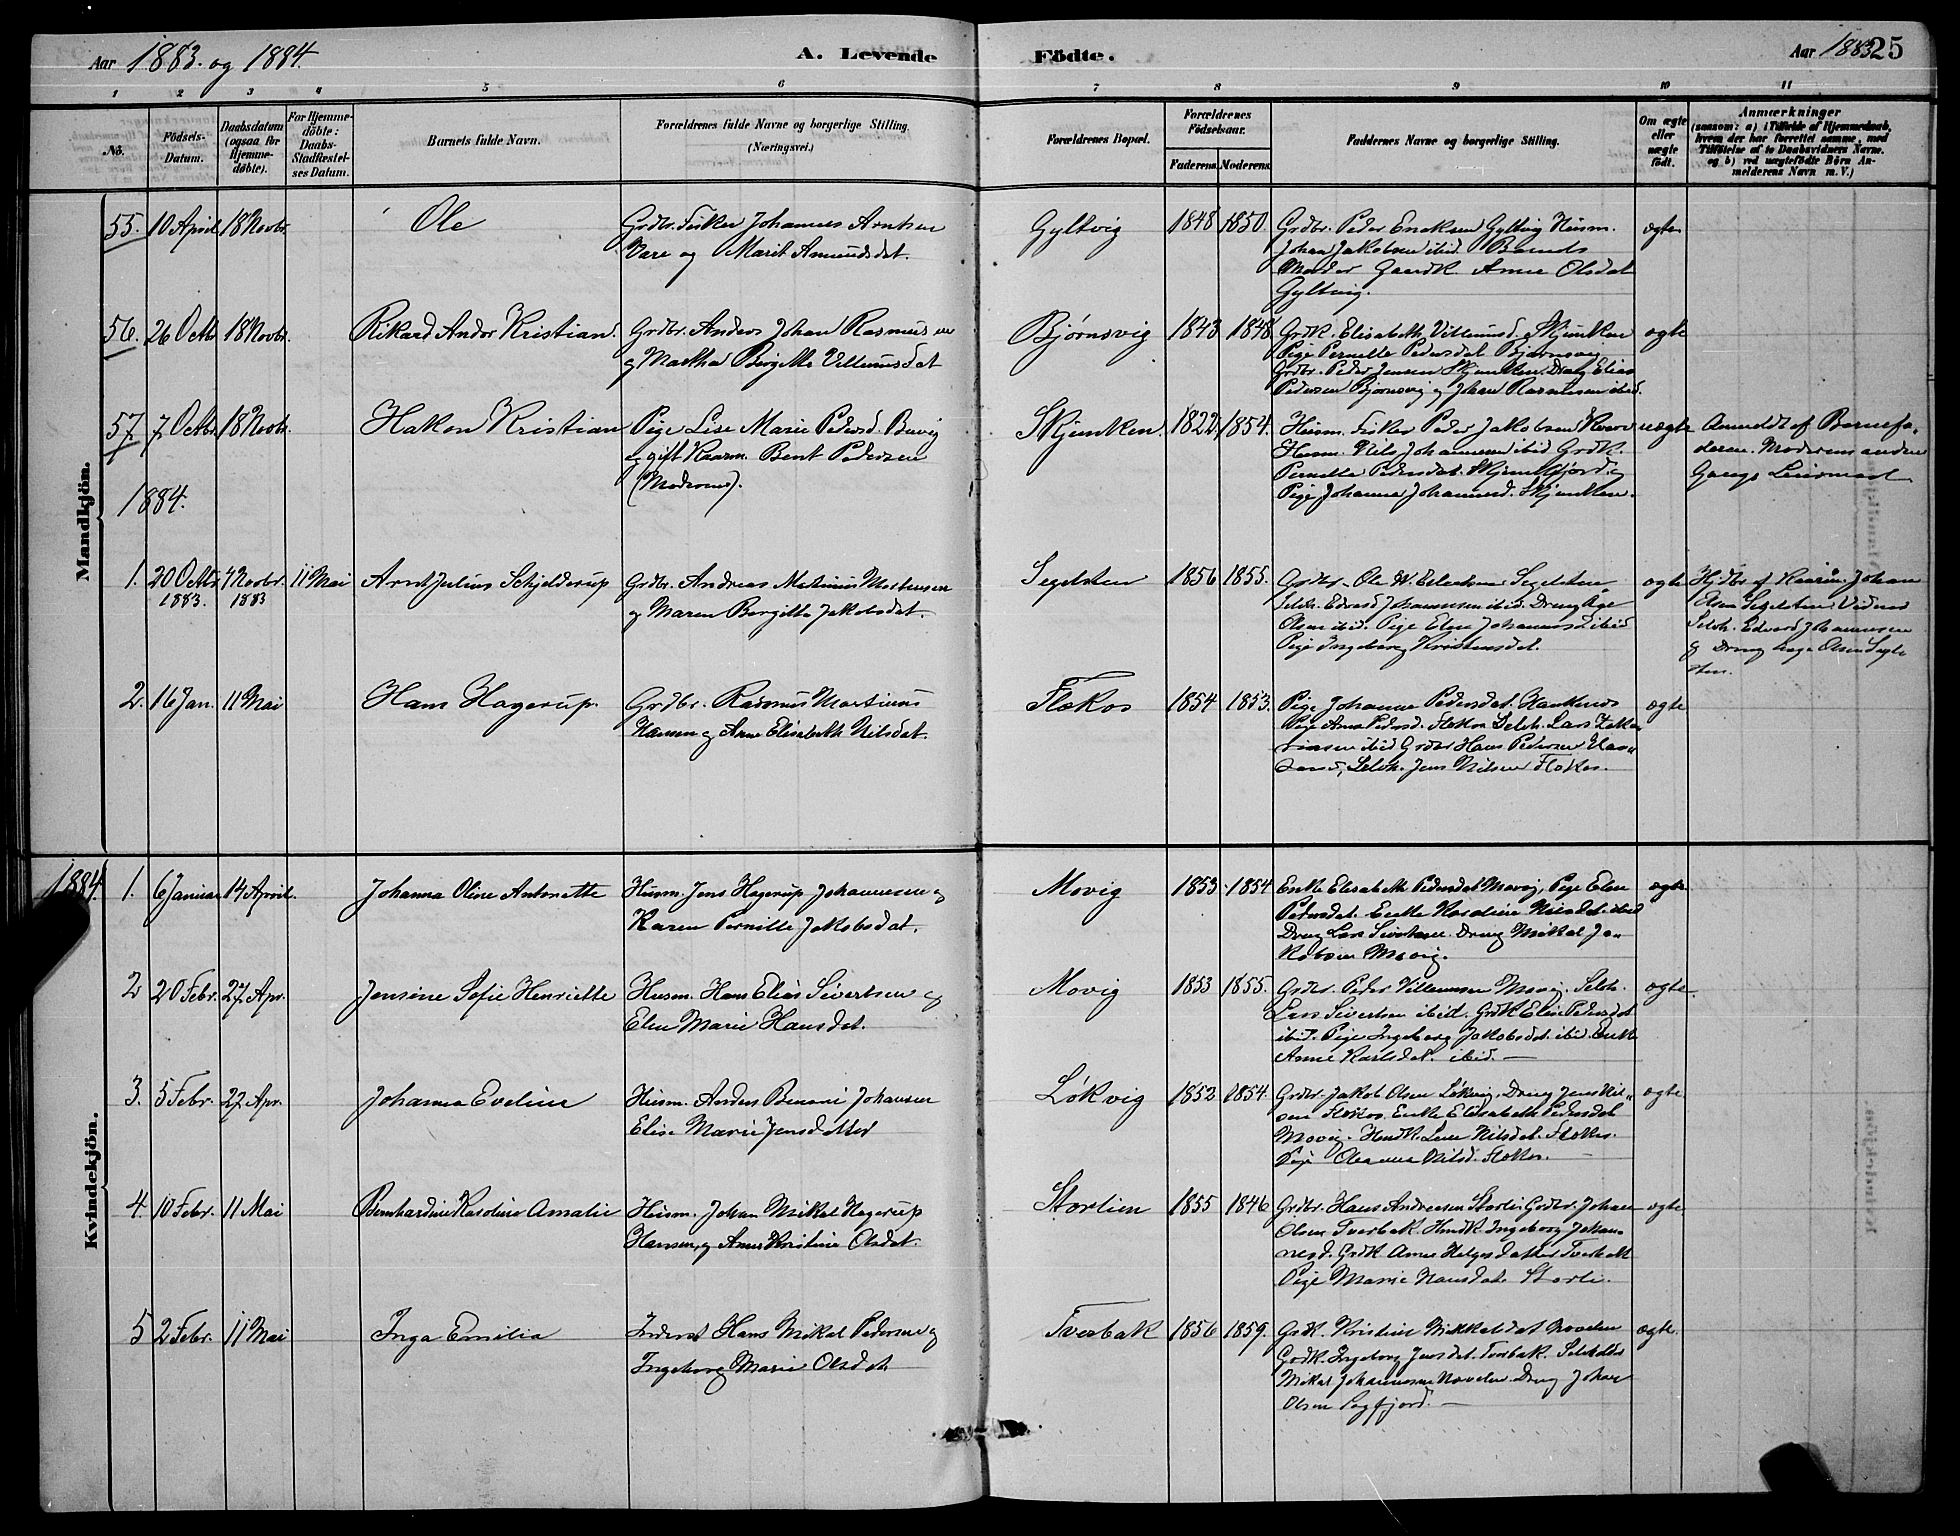 Aar 1883. og 1884.
A. Levende
Födte.
Aar 1883
25
1 2 3 4 5 6 7 8 9 10 11
No.
Födsels-
Datum.
Daabsdatum
(ogsaa for
Hjemme-
döbte).
For Hjemme-
döbte:
Daabs-
Stadfæstel-
ses Datum.
Barnets fulde Navn.
Forældrenes fulde Navne og borgerlige Stilling.
(Næringsvei.)
Forældrenes Bopæl.
Forældrenes
Födselsaar.
Faderens.
Moderens.
Faddernes Navne og borgerlige Stilling.
Om ægte
eller
uægte
födt.
Anmærkninger
(saasom: a) i Tilfælde af Hjemmedaab,
hvem der har forrettet samme, med
Tilföielse af to Daabsvidners Navne.
og b) ved uægtefödte Börn An-
melderens Navn m. V.)
Mandkjön.
55. 10 April 18 Novbr. Ole
Grdbr. Fisker Johannes Arntsen
Vare og Marit Amundsdat.
Gyltvig 1848 1850.
Grdbr. Peder Ericksen Gyltvig Husm.
Johan Jakobsen ibid Barnets
Moder Gaardk Anne Olsdat
Gyltvig.
ægte
56. 26 Octbr 18 Novbr. Rikard Andor Kristian.
Grdbr. Anders Johan Rasmussen
og Martha Bergitte Villumsdat
Bjørnsvig 1843 1848
Grdk. Elisabeth Villumsd. Skjunken
Pige Pernille Pedersdat Bjørnsvig
Grdbr. Peder Jensen Skjunken Dreng Elias
Pedersen Bjørnsvig og Johan Rasmussen ibid.
ægte
57. 7 Octbr 18 Novbr. Hakon Kristian
Pige Lise Marie Pedersd. Buvig
og gift Kaarm. Bent Pedersen
(Moderens).
Skjunken. 1822 1854.
Husm. Fisker Peder Jakobsen
Husm. Nils Johannesen ibid Grdk.
Pernille Pedersdat. Skjunkfjord og
Pige Johanna Johannesd. Skjunken.
uægte
Anmeldt af Barnefa-
deren. Moderens anden
Gangs Leiermaal
1884.
1. 20 Octbr. 1883. 4 Novbr. 1883 11 Mai Arnt Julius Schjelderup
Grdbr. Andreas Martinus Mortensen
og Maren Bergitte Jakobsdat.
Segelsten 1856 1855.
Grdbr. Ole W. Erlandsen Segelsten
Selvh. Edvard Johannesen ibid. Dreng Age
Olsen ibid. Pige Elen Johannesd ibid
Pige Ingeborg Kristensdat.
ægte
Hjdbt af Kaarm. Johan
Olsen Segelsten Vidner
Selvh. Edvard Johannesen
og Dreng Aage Olsen Segle
sten.
2. 16 Jan. 11 Mai Hans Hagerup.
Grdbr. Rasmus Martinus
Hansen og Ane Elisabeth Nilsdat.
Flækos 1854 1853.
Pige Johanne Pedersdat.
Pige Ana Pedersd. Flekos Selvh. Lars Zaka-
riasen ibid Grdbr Hans Pedersen
Selvh. Jens Nilsen Flokos.
ægte
Kvindekjön.
1884
1. 6 Januar 14 April. Johanna Oline Antonette
Husm. Jens Hagerup Johannesen og
Karen Pernille Jakobsdat.
Movig 1853 1854
Enke Elisabeth Pedersdat Movig, Pige Elen
Pedersdat. Enke Karoline Nilsdat. ibid
Dreng Lars Sivertsen. Dreng Mikal Ja-
kobsen Movig.
ægte
2 20 Febr. 27 Apr. Jensine Sofie Henriette
Husm. Hans Elias Sivertsen og
Elen Marie Hansdat.
Movig 1853 1855.
Grdbr. Peder Villumsen Movig. Selvh.
Lars Sivertsen ibid. Grdk Elis. Pedersdat
ibid. Pige Ingeborg Jakobsdat. ibid. Enke
Anne Karlsdat. ibid.
ægte.
3. 5 Febr. 27 Apr. Johanna Eveline
Husm. Anders Benoni Johansen
Elise Marie Jensdatter
Løkvig 1852 1854.
Grdbr. Jakob Olsen Løkvig, Dreng Jens Nil-
sen Flokos. Enke Elisabeth Pedersdat
Movig. Husk. Lene Nilsdat. Flokos.
Pige Oleanna Nilsd. Flokos.
ægte.
4. 10 Febr. 11 Mai Bernhardine Karoline Amalie
Husm. Johan Mikal Hagerup
Hansen og Anne Kristine Olsdat.
Storlien 1855 1846
Grdbr. Hans Andreasen Storli. Grdbr. Johan
Olsen Tverbak Husk. Ingeborg Johan-
nesd. Grdk. Anne Helgesdatter Tverbak
Pige Marie Hansdat. Storli.
ægte.
5 2 Febr. 11 Mai Inga Emilia
Inderst Hans Mikal Pedersen og
Ingeborg Marie Olsdat.
Tverbak 1856 1859.
Grdk. Kristine Mikkelsdat
Grdk. Ingeborg Jensdat. Tverbak.
Mikal Johannesen Dreng Johan
Olsen Sagfjord.
ægte.